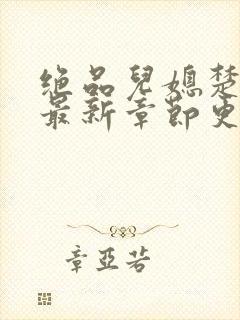 绝品儿媳楚
最新章節史
章亞若